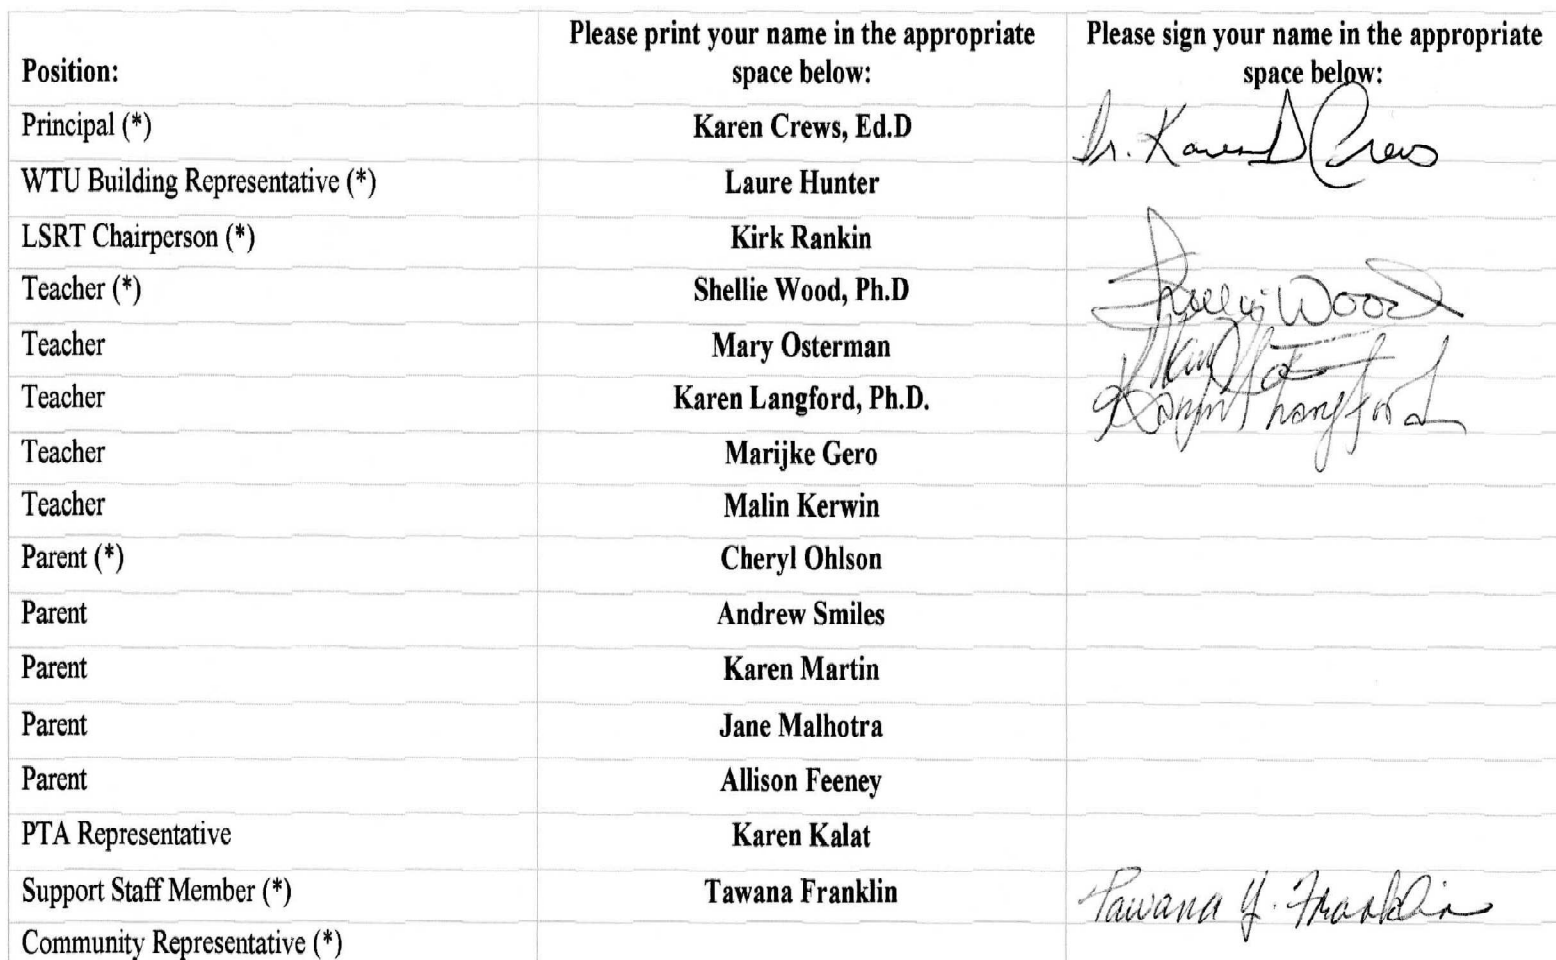 Position:
Please print your name in the appropriate
space below:
Please sign your name in the appropriate
space below:
Principal (*)
Karen Crews, Ed.D
Dr. Karen D Crews
WTU Building Representative (*)
Laure Hunter
LSRT Chairperson (*)
Kirk Rankin
Teacher (*)
Shellie Wood, Ph.D
Shellie Wood
Teacher
Mary Osterman
Teacher
Karen Langford, Ph.D.
Langford
Teacher
Marijke Gero
Teacher
Malin Kerwin
Parent (*)
Cheryl Ohlson
Parent
Andrew Smiles
Parent
Karen Martin
Parent
Jane Malhotra
Parent
Allison Feeney
PTA Representative
Karen Kalat
Support Staff Member (*)
Tawana Franklin
Tawana Y. Franklin
Community Representative (*)